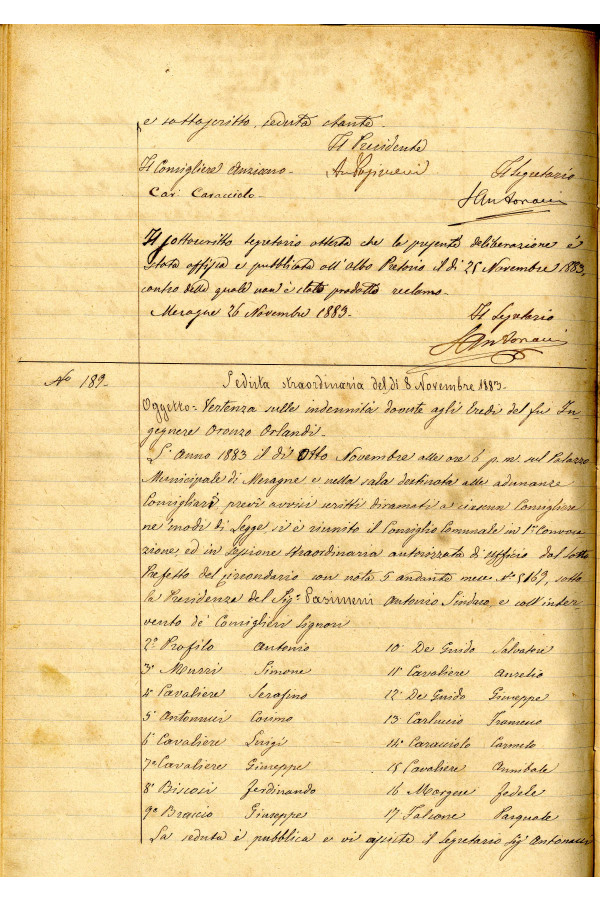 e sottoscritto, seduta stante.
Il Presidente
Il Consigliere Anziano - Ant Pasimeni Il Segretario
Car: Caracciolo - FAntonucci
Il sottoscritto segretario attesta che la presente deliberazione è
stata affissa e pubblicata all'Albo Pretorio il dì 25 Novembre 1883.
contro della quale non è stato prodotto reclamo.
Mesagne 26 Novembre 1883 - Il Segretario
FAntonucci
No 189 - Seduta straordinaria del dì 8 Novembre 1883 -
Oggetto = Vertenza sulle indennità dovute agli Eredi del fu In-
gegnere Oronzo Orlandi -
L'Anno 1883 il dì Otto Novembre alle ore 6 p.m. sul Palazzo
Municipale di Mesagne e nella sala destinata alle adunanze
Consigliari, previ avvisi scritti diramati a ciascun Consigliere
ne' modi di Legge, si è riunito il Consiglio Comunale in 1a Convoca-
zione, ed in sessione straordinaria autorizzata d'Ufficio dal Sotto
Prefetto del Circondario con nota 5 andante mese No 5163, sotto
la Presidenza del Sig.r Pasimeni Antonio Sindaco e coll'inter-
vento de' Consiglieri Signori
2o Profilo Antonio 10o De Guido Salvatore
3o Murri Simone 11o Cavaliere Aurelio
4o Cavaliere Serafino 12o De Guido Giuseppe
5o Antonucci Cosimo 13o Carluccio Francesco
6o Cavaliere Luigi 14o Caracciolo Carmelo
7o Cavaliere Giuseppe 15 Cavaliere Annibale
8o Biscosi Ferdinando 16 Morgese Fedele
9o Braccio Giuseppe 17o Falcone Pasquale
La seduta è pubblica e vi assiste il Segretario Sig.r Antonucci